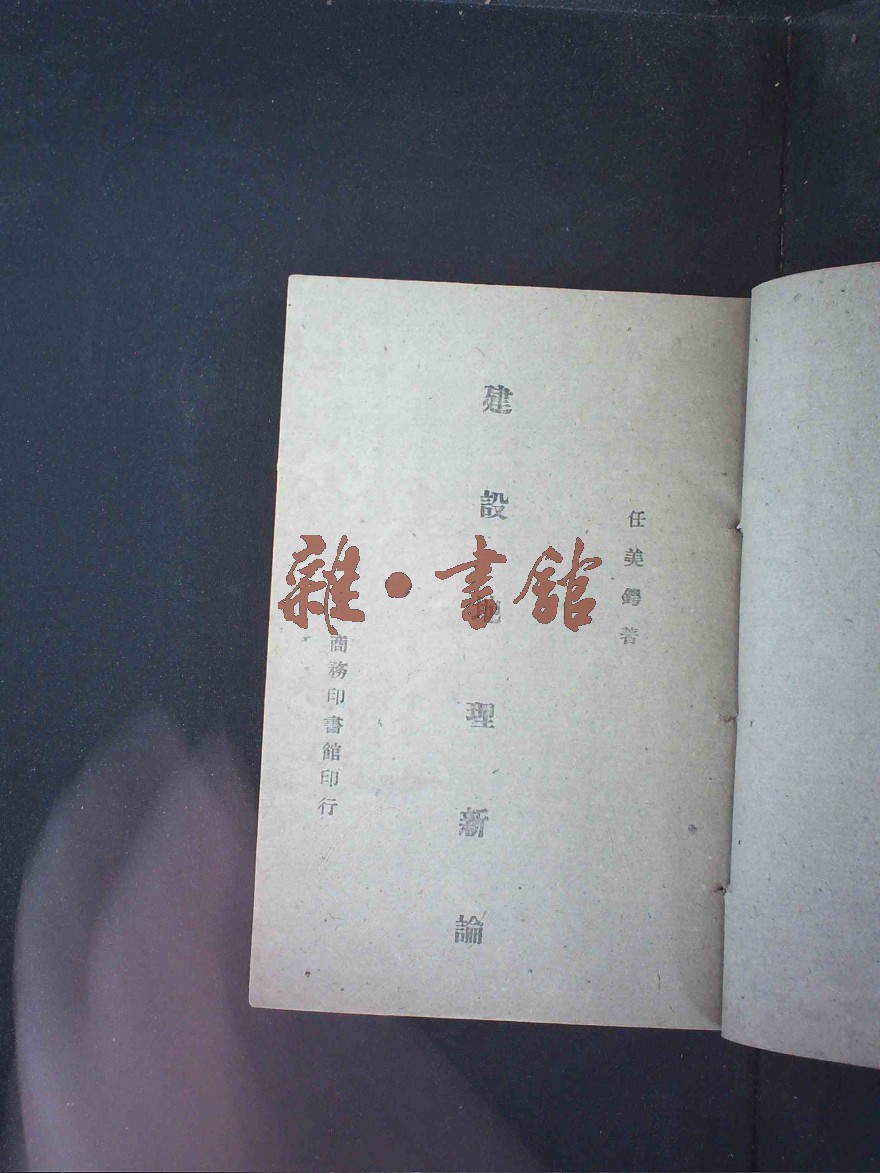 任美鍔著
建設地理新論
商務印書館印行
雜·書館